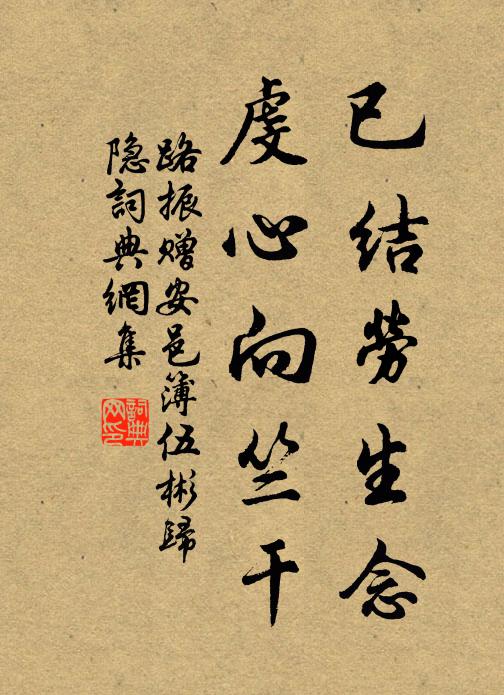 已结劳生念
虔心向竺干
路振赠安邑簿伍彬歸
隐詞典網集
詞典网印